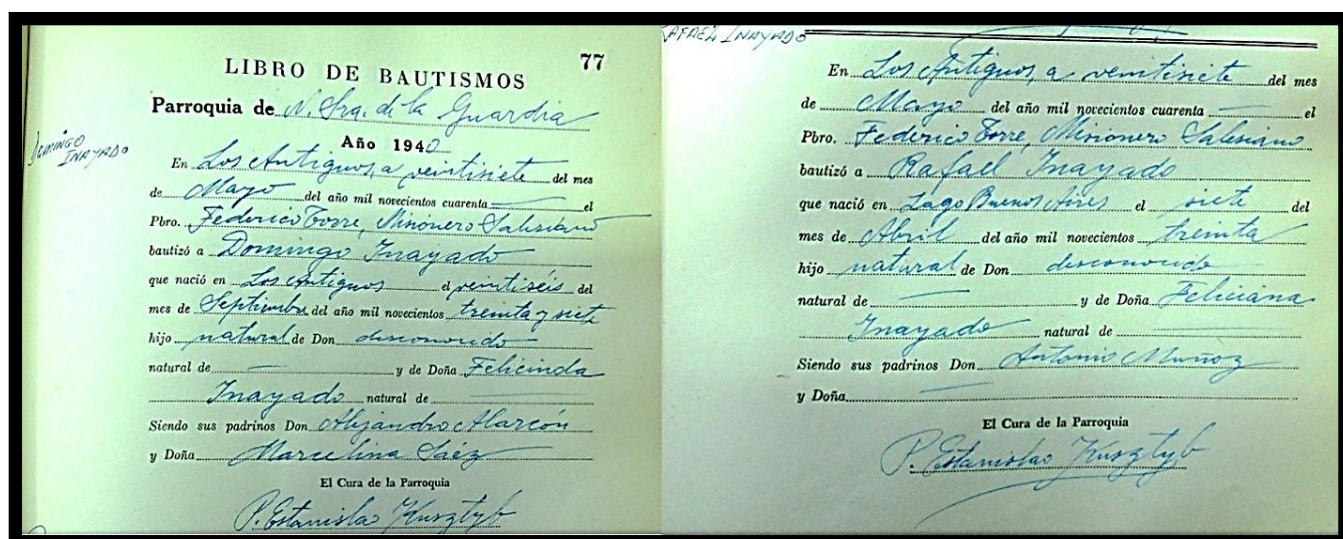 LIBRO DE BAUTISMOS 77
Parroquia de N. Sra. de la Guardia
Año 1940
DOMINGO
INAYADO
En Los Antiguos, a veintisiete del mes
de Mayo del año mil novecientos cuarenta el
Pbro. Federico Torre, Misionero Salesiano
bautizó a Domingo Inayado
que nació en Los Antiguos el veintiséis del
mes de Septiembre del año mil novecientos treinta y siete
hijo natural de Don desconocido
natural de y de Doña Felicinda
Inayado natural de
Siendo sus padrinos Don Alejandro Alarcón
y Doña Marcelina Sáez
El Cura de la Parroquia
P. Estanislao Kusztyb
RAFAEL INAYADO
En Los Antiguos, a veintisiete del mes
de Mayo del año mil novecientos cuarenta el
Pbro. Federico Torre, Misionero Salesiano
bautizó a Rafael Inayado
que nació en Lago Buenos Aires el siete del
mes de Abril del año mil novecientos treinta
hijo natural de Don desconocido
natural de y de Doña Feliciana
Inayado natural de
Siendo sus padrinos Don Antonio Muñoz
y Doña
El Cura de la Parroquia
P. Estanislao Kusztyb